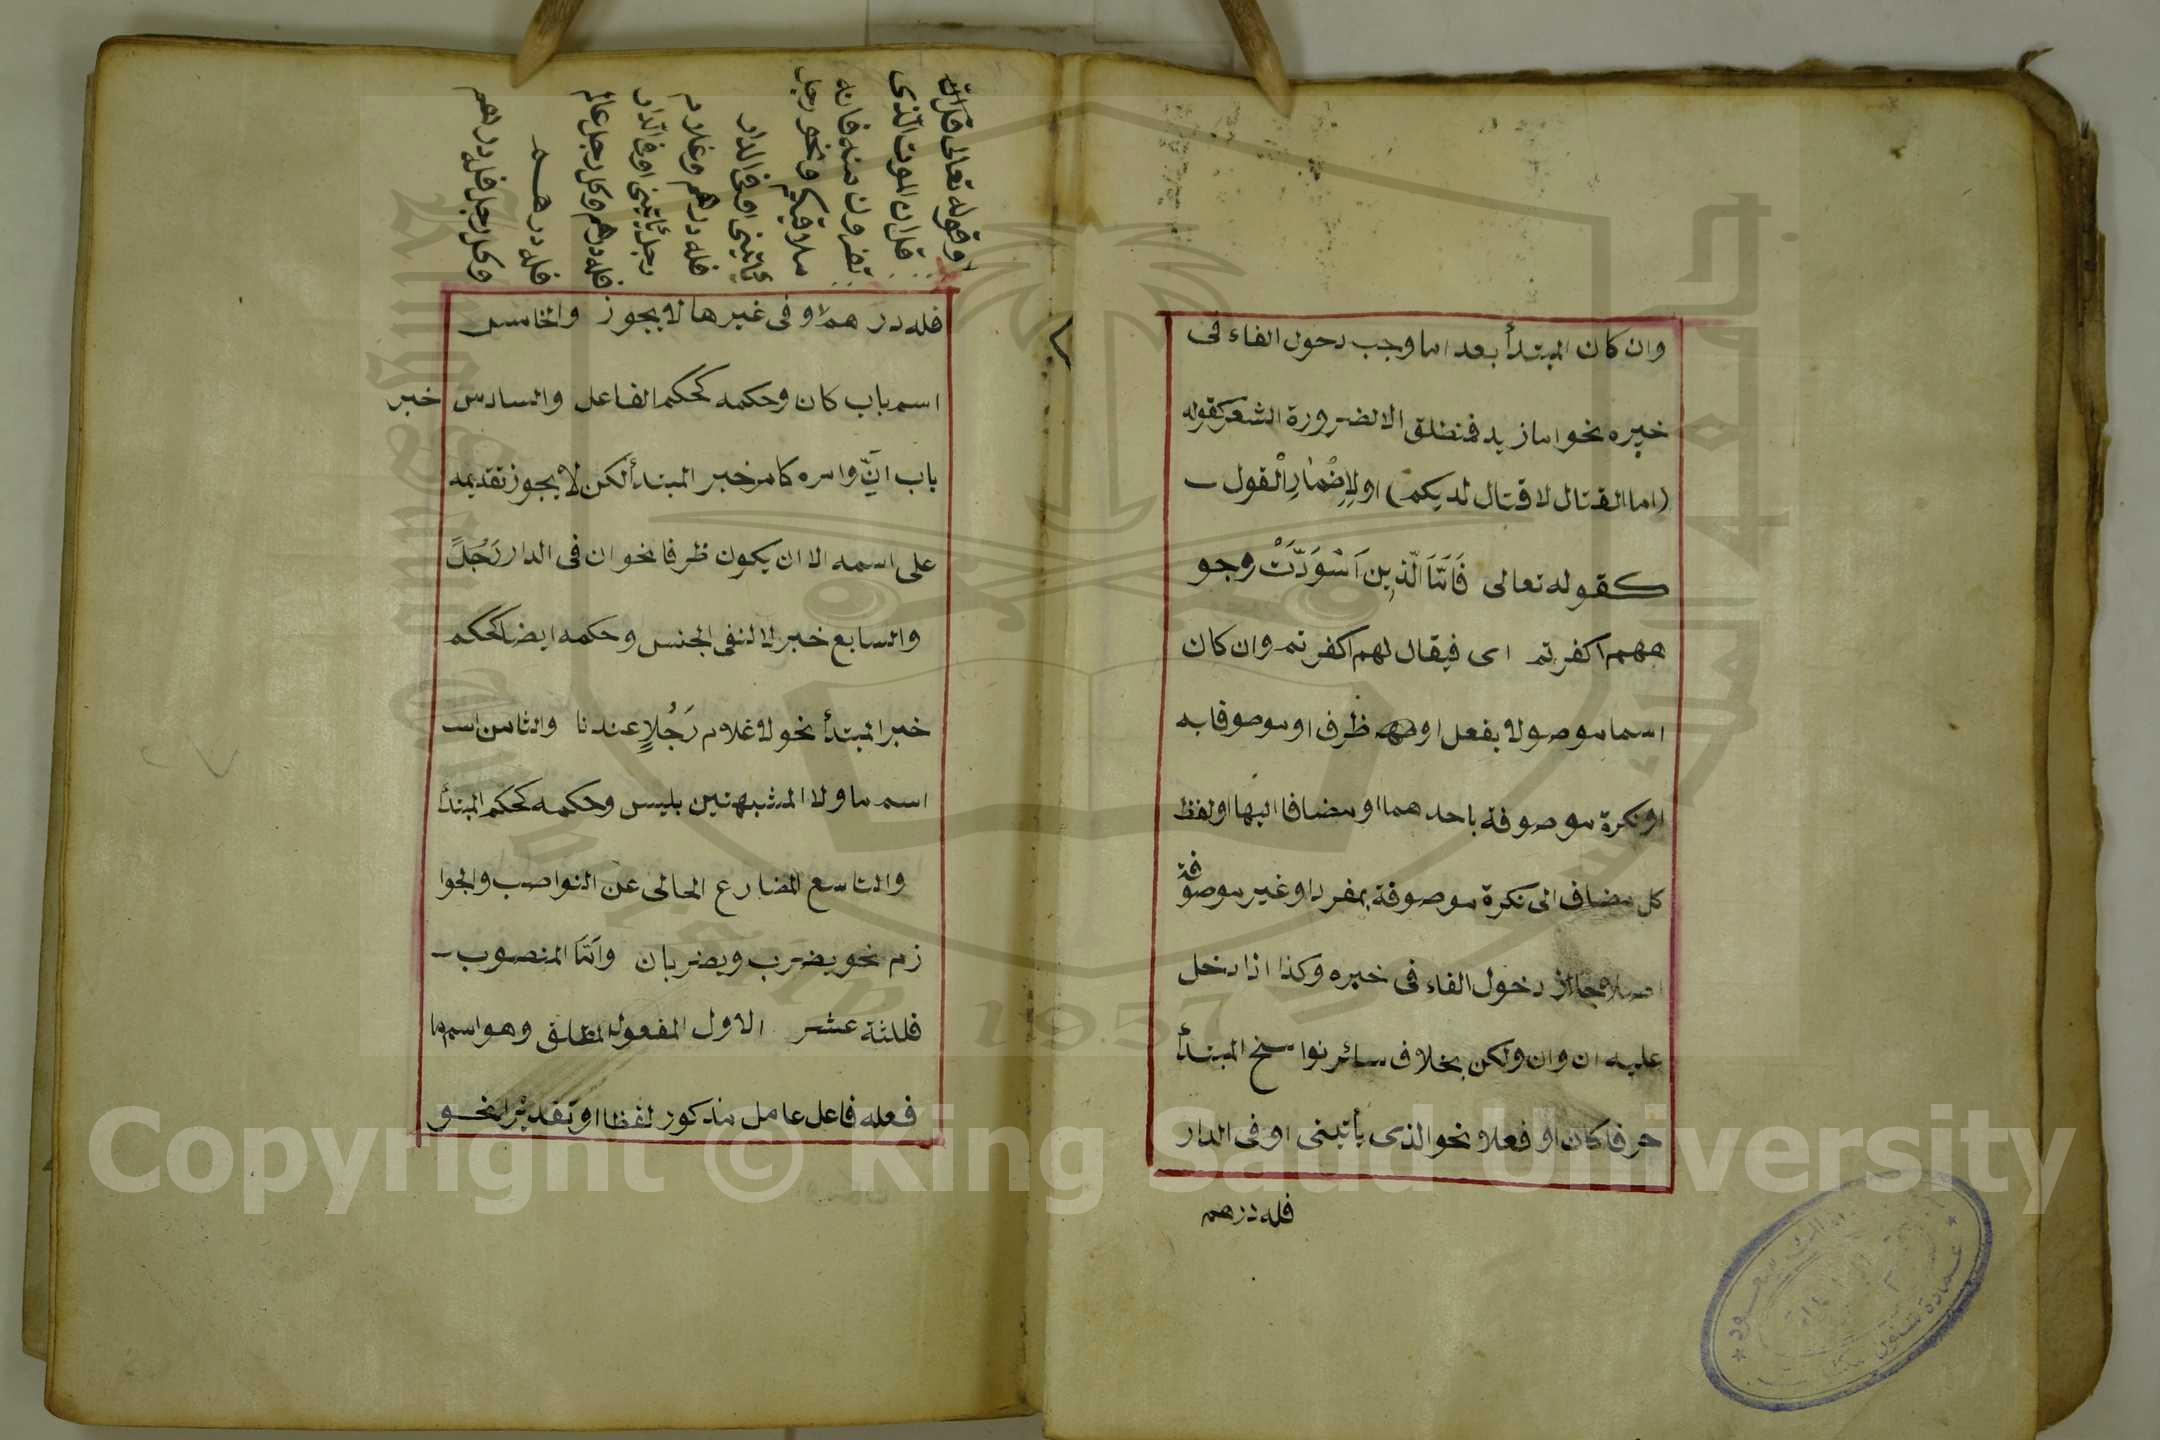 وان كان المبتدأ بعد اما وجب دخول الفاء فى
خبره نحو اما زيد فمنطلق الا لضرورة الشعر كقوله
(اما القتال لا قتال لديكم) او لِاِضْمٰارِ الْقول
كقوله تعالى فَاَمَّا الَّذِينَ اَسْوَدَّتْ وجو
ههم اكفرتم اى فيقال لهم اكفرتم وان كان
اسما موصولا بفعل او ظرف او موصوفا به
او نكرة موصوفة باحدهما او مضافا اليها او لفظ
كل مضاف الى نكرة موصوفة بمفرد او غير موصوفة
اصلا جاز دخول الفاء فى خبره وكذا اذا دخل
عليه ان وان ولكن بخلاف سائر نواسخ المبتدأ
حرفا كان او فعلا نحو الذى يأتينى او فى الدار
فله درهم
وقوله تعالى قل ان
قل ان الموت الّذى
تفرون منه فانه
ملاقيكم ونحو رجل
يأتينى او فى الدار
فله درهم وغلام
رجل يأتينى او فى الدّار
فله درهم وكل رجل عالم
فله درهم
وكل رجل فله درهم
فله درهم او فى غيرها لا يجوز والخامس
اسم باب كان وحكمه كحكم الفاعل والسادس خبر
باب اَنَّ وامره كامر خبر المبتدأ لكن لا يجوز تقديمه
على اسمه الا ان يكون ظرفا نحو ان فى الدار رَجُلً
والسابع خبر لا لنفى الجنس وحكمه ايضا كحكم
خبر المبتدأ نحو لا غلام رَجُلٍ عندنا والثامن اسـ
اسم ما ولا المشبهتين بليس وحكمه كحكم المبتدأ
والتاسع المضارع الخالى عن النواصب والجوا
زم نحو يضرب ويضربان وَاَمَّا المنصوب
فثلثة عشر الاول المفعول المطلق وهو اسم ما
فعله فاعل عامل مذكور لفظا او تقديْرا نحو
Copyright © King Saud University
1957
عمادة شئون